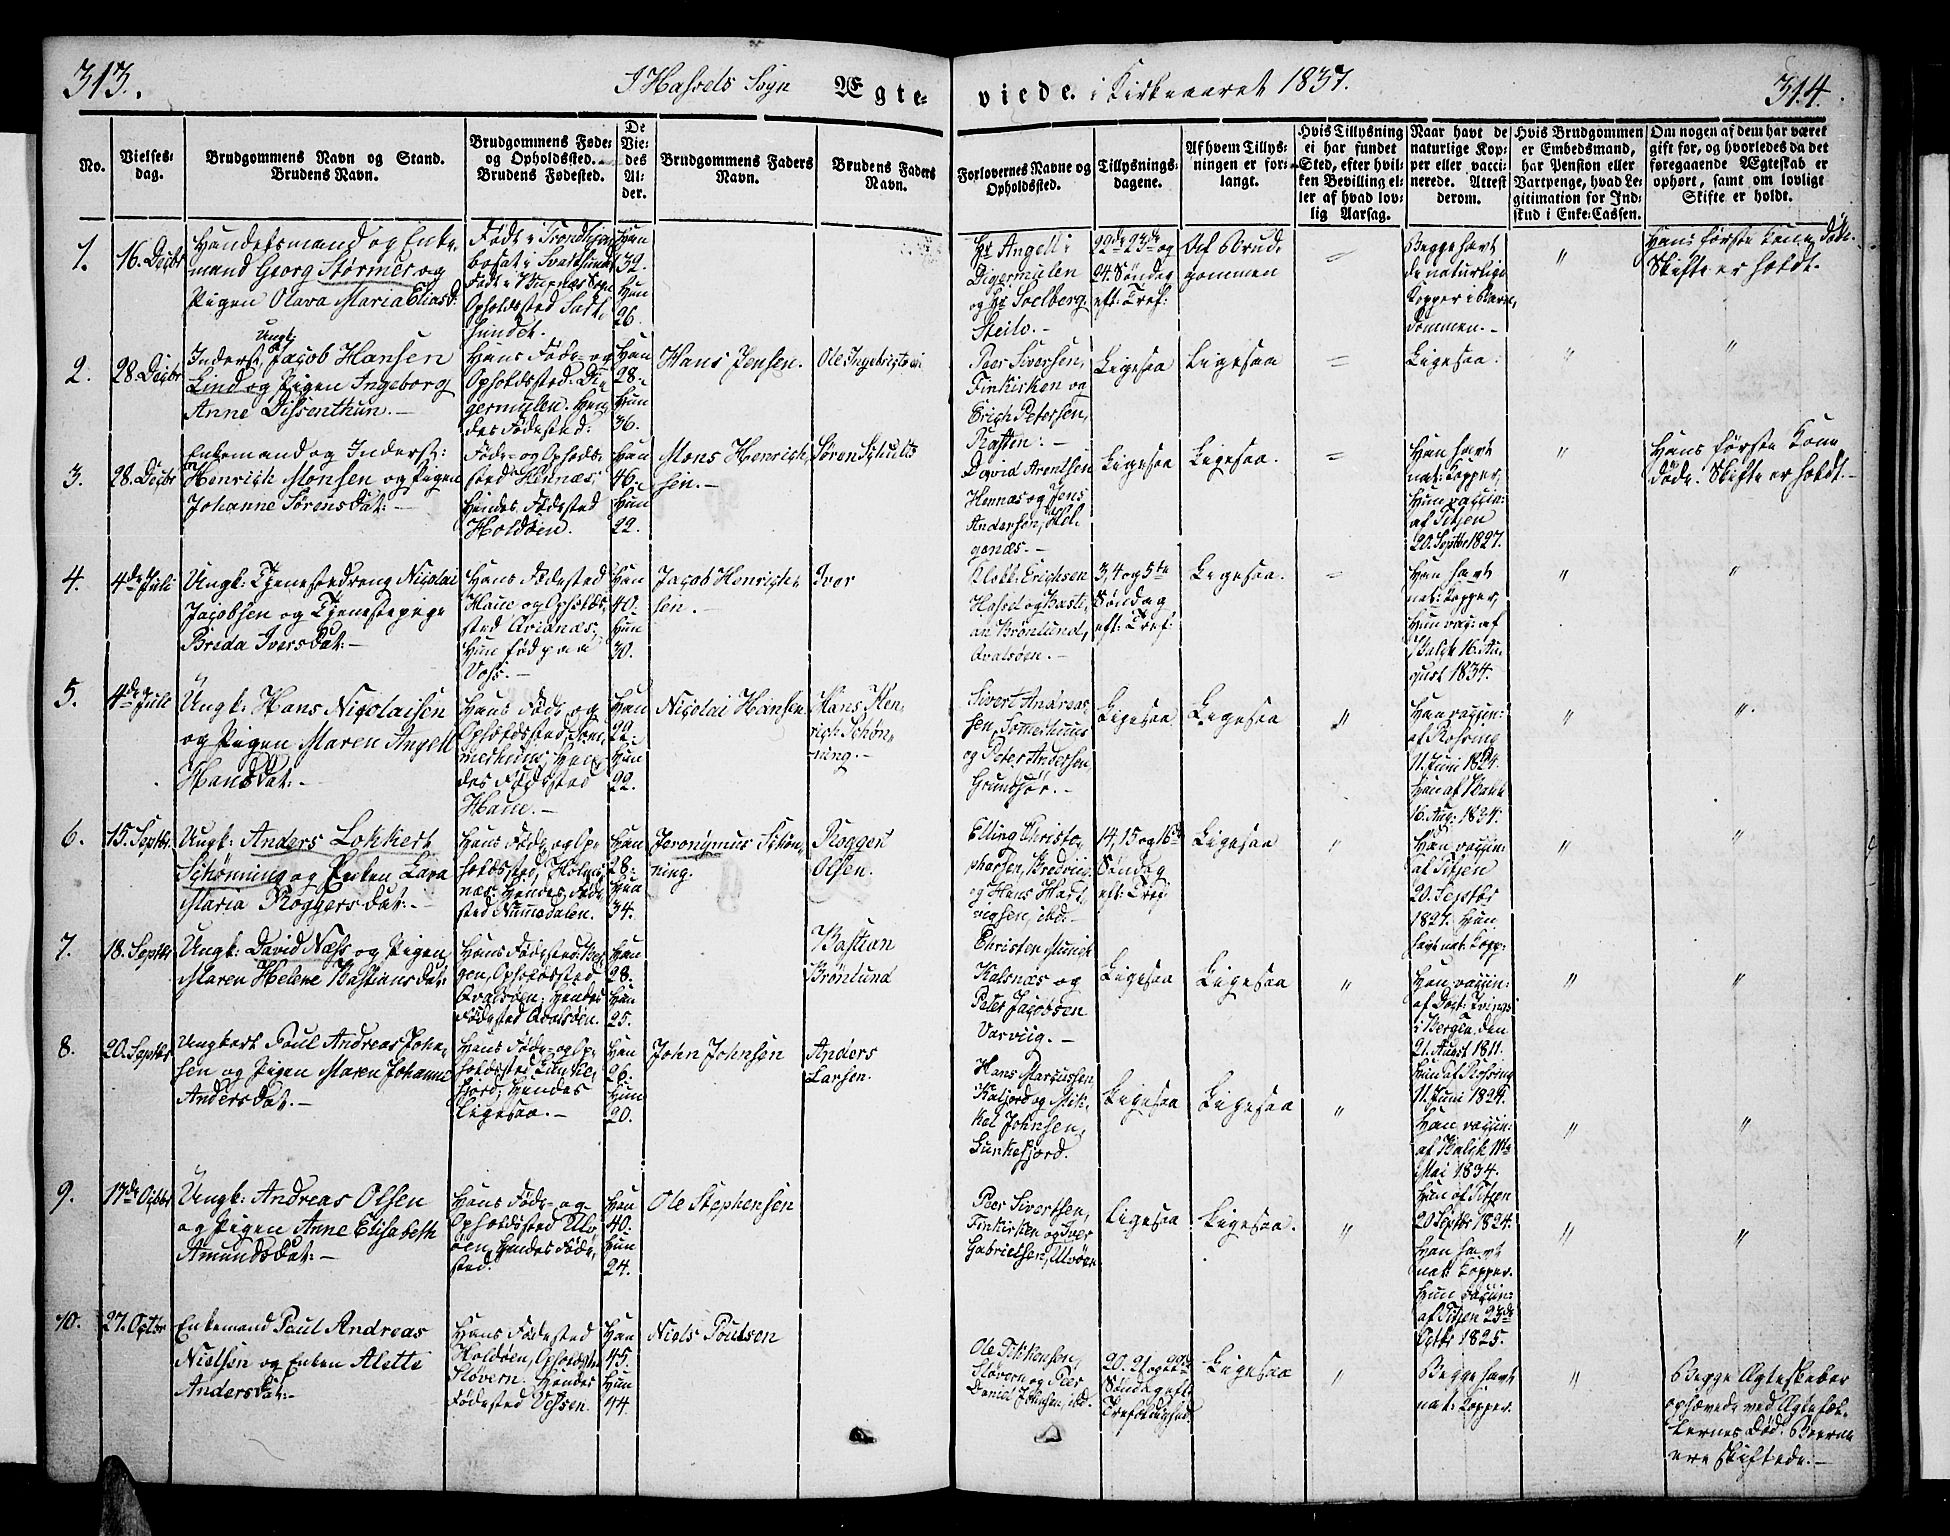 313.
I Hassels Sogn Ægte-
viede. i Kirkeaaret 1837.
314.
No.
Vielses-
dag.
Brudgommens Navn og Stand.
Brudens Navn.
Brudgommens Føde-
og Opholdssted.
Brudens Fødested.
De
Vie-
des
Al-
der.
Brudgommens Faders
Navn.
Brudens Faders
Navn.
Forlovernes Navne og
Opholdssted.
Tillysnings-
dagene.
Af hvem Tillys-
ningen er for-
langt.
Hvis Tillysning
ei har fundet
Sted, efter hvil-
ken Bevilling el-
ler af hvad lov-
lig Aarsag.
Naar havt de
naturlige Kop-
per eller vacci-
nerede. Attest
derom.
Hvis Brudgommen
er Embedsmand,
har Pension eller
Vartpenge, hvad Le-
gitimation for Ind-
skud i Enke-Cassen.
Om nogen af dem har været
gift for, og hvorledes da det
foregaaende Ægteskab er
ophørt, samt om lovligt
Skifte er holdt.
1.
16. Decbr
Handelsmand og Enke-
mand Georg Størmer og
Pigen Olava Maria Eliasd:
Født i Trondhjem
bosat i Svartsundet
Født i Buxnæs Sogn
Opholdssted Salt,
sundet.
Han
39.
Hun
26.
Hr Angell i
Digermulen
og Hr Soelberg
Steilo.-
22de 23de og
24 Søndag
eft: Tref:
Af Brud-
gommen
=
Begge havt
de naturlige
Kopper i Barn,
dommen.-
"
Hans første Kone død.
Skifte er holdt.
2.
28. Decbr
Inderst, Ungk: Jacob Hansen
Lind og Pigen Ingeborg
Anne Dissenthun.-
Hans Føde- og
Opholdssted: Di-
germulen. Hen-
des Fødested:
Han
28-
Hun
36.
Hans Jensen.
Ole Ingebrigtsen
Peer Sivertsen,
Finkirken og
Erich Petersen,
Rasten:-
Ligesaa
Ligesaa
=
Ligesaa:
"
"
3.
28. Decbr
Enkemand og Inderst:
Henrich Monsen og Pigen
Johanne Sørensdat:-
Føde- og Opholds,
sted Hennæs,
Hendes Fødested
Holdøen.
Han
46.
Hun
22.
Mons Henrich,
sen.-
Søren Schults
David Arentsen
Hennæs og Jens
Andersen, Hol-
genæs.-
Ligesaa
Ligesaa.
=
Han havt
nat: Kopper,
Hun vaccin:
af Titjen
20. Septbr 1827.
"
Hans første Kone
døde. Skifte er holdt.-
4.
4de Juli
Ungk: Tjenestedreng Nicolai
Jacobsen og Tjenestepige
Breda Iversdat:-
Hans Fødested
Haue og Opholds,
sted Qvianæs,
Hun født paa
Voss.-
Han
40.
Hun
30.
Jacob Henrich-
sen.-
Ivor
Klokk: Erichsen
Hassel og Basti,
an Brønlund,
Qvalsøen.-
3, 4 og 5te
Søndag
eft: Tref:
Ligesaa.
=
Han havt
nat: Kopper,
Hun vac: af
Balck 16. Au-
gust 1834.
"
"
5.
4de Juli
Ungk: Hans Nicolaisen
og Pigen Maren Angell
Hansdat:-
Hans Føde- og
Opholdssted, Som,
merhuus, Hen-
des Fødested
Haue.-
Han
22.
Hun
22.
Nicolai Hansen
Hans Hen-
rich Schøn-
ning.-
Sivert Andreas,
sen, Somerhuus
og Peter Andersen,
Grundfør.-
Ligesaa
Ligesaa
"
Han vaccin:
af Rosing
11. Juni 1824.
Hun af Balck
16. Aug: 1834.
"
"
6.
15. Septbr.
Ungk: Anders Lokkert
Schønning og Enken Lava
Maria Roggersdat:-
Hans Føde- og Op-
holdssted, Holm,
næs. Hendes Føde-
sted Numedalen.
Han
28-
Hun
34.
Jeronymus Schøn-
ning.
Rogger
Olsen.
Elling Christo-
phersen, Bredviig
og Hans Hart-
vigsen, ibd.-
14, 15 og 16de
Søndag
eft: Tref:
Ligesaa
"
Han vaccin:
af Titjen
20. Septbr
1827. Hun
havt nat: Kopp:
"
"
7.
18. Septbr
Ungk: David Næss og Pigen
Maren Helene Bastiansdat:
Hans Fødested: Ber-
gen, Opholdssted
Qvalsøen, Hendes
Fødested Qvalsøen.
Han
28.
Hun
25.
Bastian
Brønlund
Christen Munch
Kalsnæs og
Peter Jacobsen
Varviig.-
Ligesaa
Ligesaa
"
Han vaccin:
af Doct: Tvings
i Bergen, den
21. August 1811.
Hun af Rosing
11. Juni 1824.
"
"
8.
20. Septbr
Ungkarl Poul Andreas John-
sen og Pigen Maren Johanne
Andersdat:-
Hans Føde- og Op-
holdssted Gunke,
fjord, Hendes
Ligesaa.-
Han
26.
Hun
20.
John Johnsen
Anders
Larsen.
Hans Marcussen,
Kaljord og Mik-
kel Johnsen,
Gunkefjord.
Ligesaa
Ligesaa
"
Han vaccin:
af Balck 11te
Mai 1834.
Hun af Titjen
20 Septbr 1824.
"
"
9.
17de Octbr
Ungk: Andreas Olsen
og Pigen Anne Elisabeth
Amundsdat:-
Hans Føde- og
Opholdssted Ulv-
øen, Hendes Føde-
sted.
Han
40.
Hun
24.
Ole Stephensen
Peer Sivertsen,
Finkirken og Iver
Gabrielsen, Ulvøen
Ligesaa
Ligesaa.
"
Han havt
nat: Kopper.
Hun vaccin:
af Titjen 23de
Octbr 1825.
"
"
10.
27. Octbr
Enkemand Paul Andreas
Nielsen og Enken Alette
Andersdat:-
Hans Fødested
Holdøen, Opholdsst
Støvern. Hendes
Fødested Vessen.
Han
45.
Hun
44.
Niels Poulsen
Ole Tikkensen,
Støvern og Peer
Daniel Johnsen, ibd.
20. 21 og 22de
Søndag eft:
Trefoldighed.
Ligesaa
"
Begge havt
nat: Kopper.
"
Begge Ægteskaber
ophævede ved Ægtefæl-
lernes Død. Boerne
ere skiftede.-